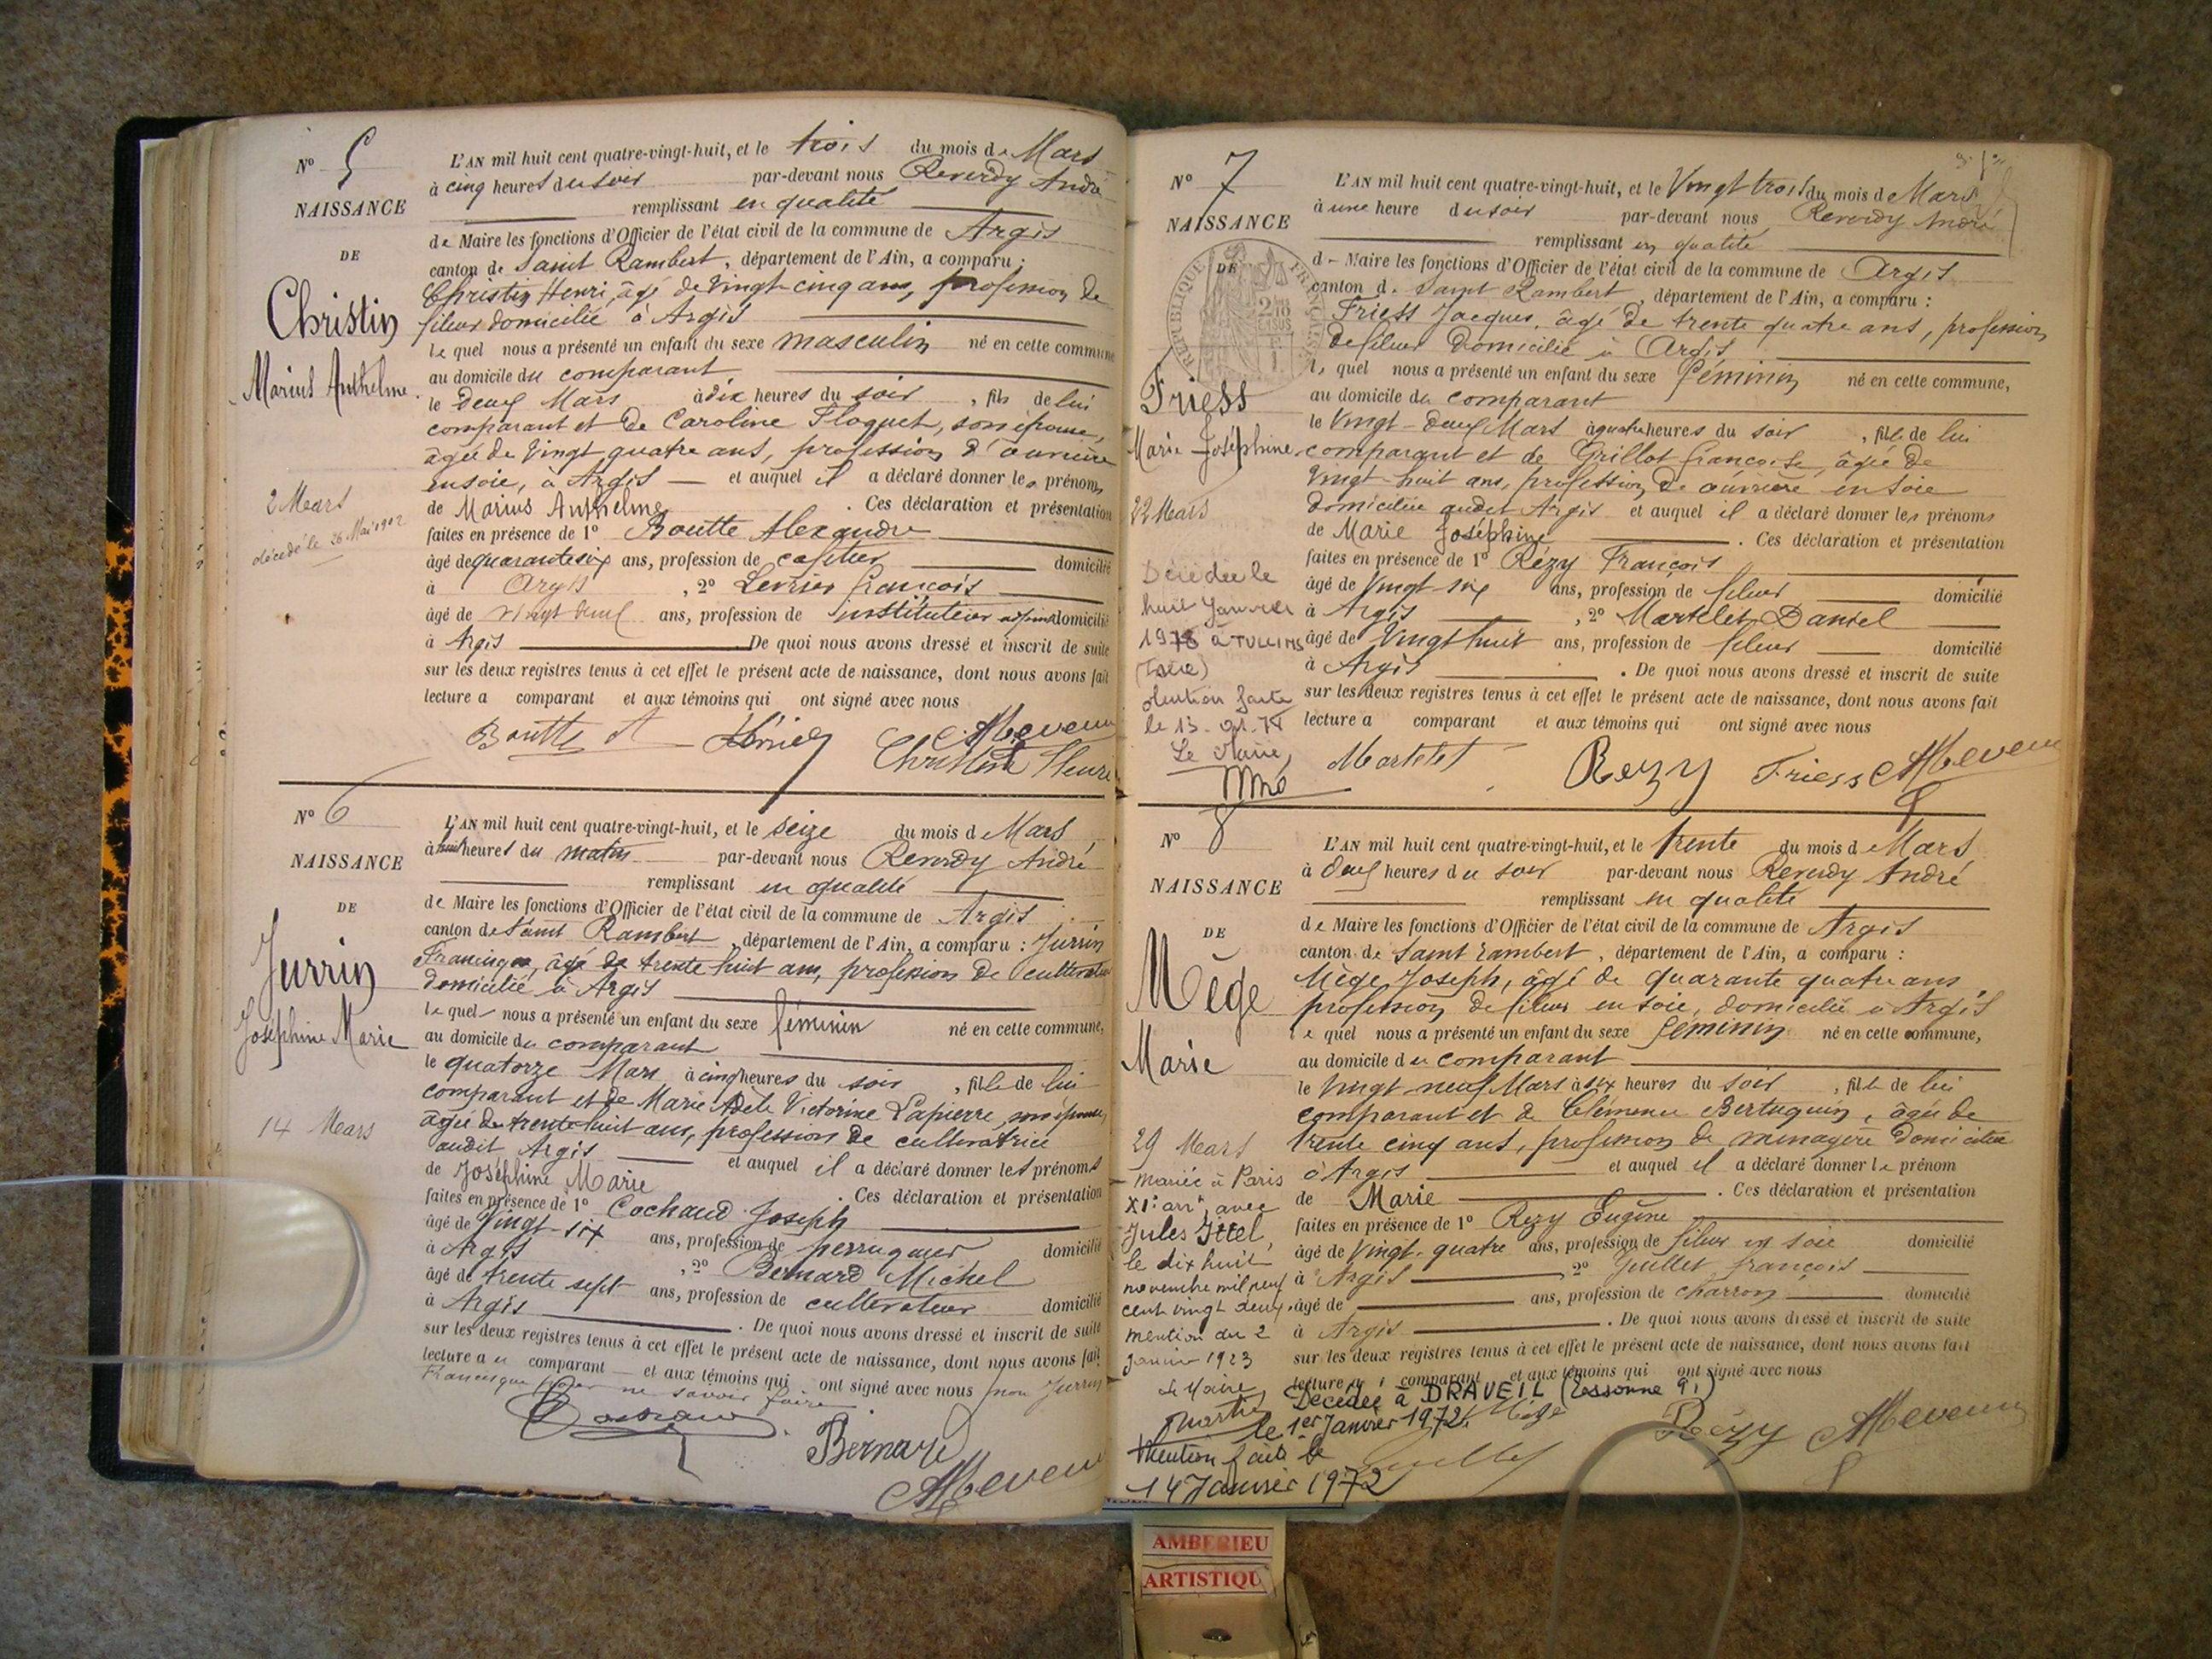 N° 5
NAISSANCE
DE
Christin
Marius Anthelme
2 Mars
décédé le 26 Mai 1902
L'AN mil huit cent quatre-vingt-huit, et le trois du mois de Mars
à cinq heures du soir par-devant nous Reverdy André
remplissant en qualité
de Maire les fonctions d'Officier de l'état civil de la commune de Argis
canton de Saint Rambert, département de l'Ain, a comparu :
Christin Henri, âgé de vingt-cinq ans, profession de
fileur domicilié à Argis
le quel nous a présenté un enfant du sexe masculin né en cette commune
au domicile du comparant
le deux Mars à dix heures du soir, fils de lui
comparant et de Caroline Floquet, son épouse,
âgée de vingt quatre ans, profession d'ouvrière
en soie, à Argis et auquel il a déclaré donner les prénoms
de Marius Anthelme . Ces déclaration et présentation
faites en présence de 1° Boutte Alexandre
âgé de quarante six ans, profession de cafetier domicilié
à Argis, 2° Levrier françois
âgé de vingt deux ans, profession de instituteur domicilié
à Argis . De quoi nous avons dressé et inscrit de suite
sur les deux registres tenus à cet effet le présent acte de naissance, dont nous avons fait
lecture a comparant et aux témoins qui ont signé avec nous
Boutte A
Christin Henri
N° 6
NAISSANCE
DE
Jurrin
Joséphine Marie
14 Mars
L'AN mil huit cent quatre-vingt-huit, et le seize du mois d Mars
à huit heures du matin par-devant nous Reverdy André
remplissant en qualité
de Maire les fonctions d'Officier de l'état civil de la commune de Argis
canton de Saint Rambert, département de l'Ain, a comparu : Jurrin
Francique, âgé de trente huit ans, profession de cultivateur
domicilié à Argis
le quel nous a présenté un enfant du sexe féminin né en cette commune,
au domicile du comparant
le quatorze Mars à cinq heures du soir, fille de lui
comparant et de Marie Adèle Victorine Lapierre, son épouse,
âgée de trente huit ans, profession de cultivatrice
audit Argis et auquel il a déclaré donner les prénoms
de Joséphine Marie . Ces déclaration et présentation
faites en présence de 1° Cochaud Joseph
âgé de Vingt-six ans, profession de perruquier domicilié
à Argis, 2° Bernard Michel
âgé de trente sept ans, profession de cultivateur domicilié
à Argis . De quoi nous avons dressé et inscrit de suite
sur les deux registres tenus à cet effet le présent acte de naissance, dont nous avons fait
lecture au comparant et aux témoins qui ont signé avec nous non Jurrin
Francique pour ne savoir faire
Bernard
N° 7
NAISSANCE
DE
RÉPUBLIQUE FRANÇAISE
Friess
Marie Joséphine
22 Mars
Décédée le
huit Janvier
1978 à TULLINS
(Isère)
Mention faite
le 13-01-78
Le Maire,
L'AN mil huit cent quatre-vingt-huit, et le Vingt trois du mois de Mars
à une heure du soir par-devant nous Reverdy André
remplissant en qualité
d Maire les fonctions d'Officier de l'état civil de la commune de Argis
canton d. Saint Rambert, département de l'Ain, a comparu :
Friess Jacques, âgé de trente quatre ans, profession
de fileur domicilié à Argis
le quel nous a présenté un enfant du sexe féminin né en cette commune,
au domicile du comparant
le Vingt-deux Mars à quatre heures du soir, fille de lui
comparant et de Grillot françoise, âgée de
Vingt-huit ans, profession de ouvrière en soie
domiciliée audit Argis et auquel il a déclaré donner les prénoms
de Marie Joséphine . Ces déclaration et présentation
faites en présence de 1° Rézy François
âgé de Vingt-six ans, profession de fileur domicilié
à Argis, 2° Martelet Daniel
âgé de Vingt huit ans, profession de fileur domicilié
à Argis . De quoi nous avons dressé et inscrit de suite
sur les deux registres tenus à cet effet le présent acte de naissance, dont nous avons fait
lecture a comparant et aux témoins qui ont signé avec nous
Martelet Rezy Friess
N° 8
NAISSANCE
DE
Mège
Marie
29 Mars
mariée à Paris
XIe arrt, avec
Jules Ittel,
le dix huit
novembre mil neuf
cent vingt deux.
mention du 2
Janvier 1923
Le Maire,
L'AN mil huit cent quatre-vingt-huit, et le trente du mois d Mars
à deux heures du soir par-devant nous Reverdy André
remplissant en qualité
de Maire les fonctions d'Officier de l'état civil de la commune de Argis
canton de Saint Rambert, département de l'Ain, a comparu :
Mège Joseph, âgé de quarante quatre ans,
profession de fileur en soie, domicilié à Argis
le quel nous a présenté un enfant du sexe féminin né en cette commune,
au domicile du comparant
le vingt neuf Mars à six heures du soir, fille de lui
comparant et de Clémence Bertuquin, âgée de
trente cinq ans, profession de ménagère domiciliée
à Argis et auquel il a déclaré donner le prénom
de Marie . Ces déclaration et présentation
faites en présence de 1° Rezy Eugène
âgé de Vingt-quatre ans, profession de fileur en soie domicilié
à Argis, 2° Juillet françois
âgé de ans, profession de charron domicilié
à Argis . De quoi nous avons dressé et inscrit de suite
sur les deux registres tenus à cet effet le présent acte de naissance, dont nous avons fait
lecture au comparant et aux témoins qui ont signé avec nous
Décédée à DRAVEIL (Essonne 91)
le 1er Janvier 1972. Mège Rézy
Mention faite le
14 Janvier 1972
AMBERIEU
ARTISTIQU